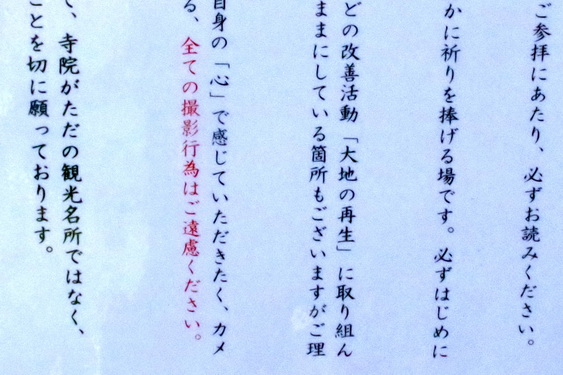 ご参拝にあたり、必ずお読みください。
かに祈りを捧げる場です。必ずはじめに
どの改善活動「大地の再生」に取り組ん
ままにしている箇所もございますがご理
自身の「心」で感じていただきたく、カメ
る、全ての撮影行為はご遠慮ください。
て、寺院がただの観光名所ではなく、
ことを切に願っております。